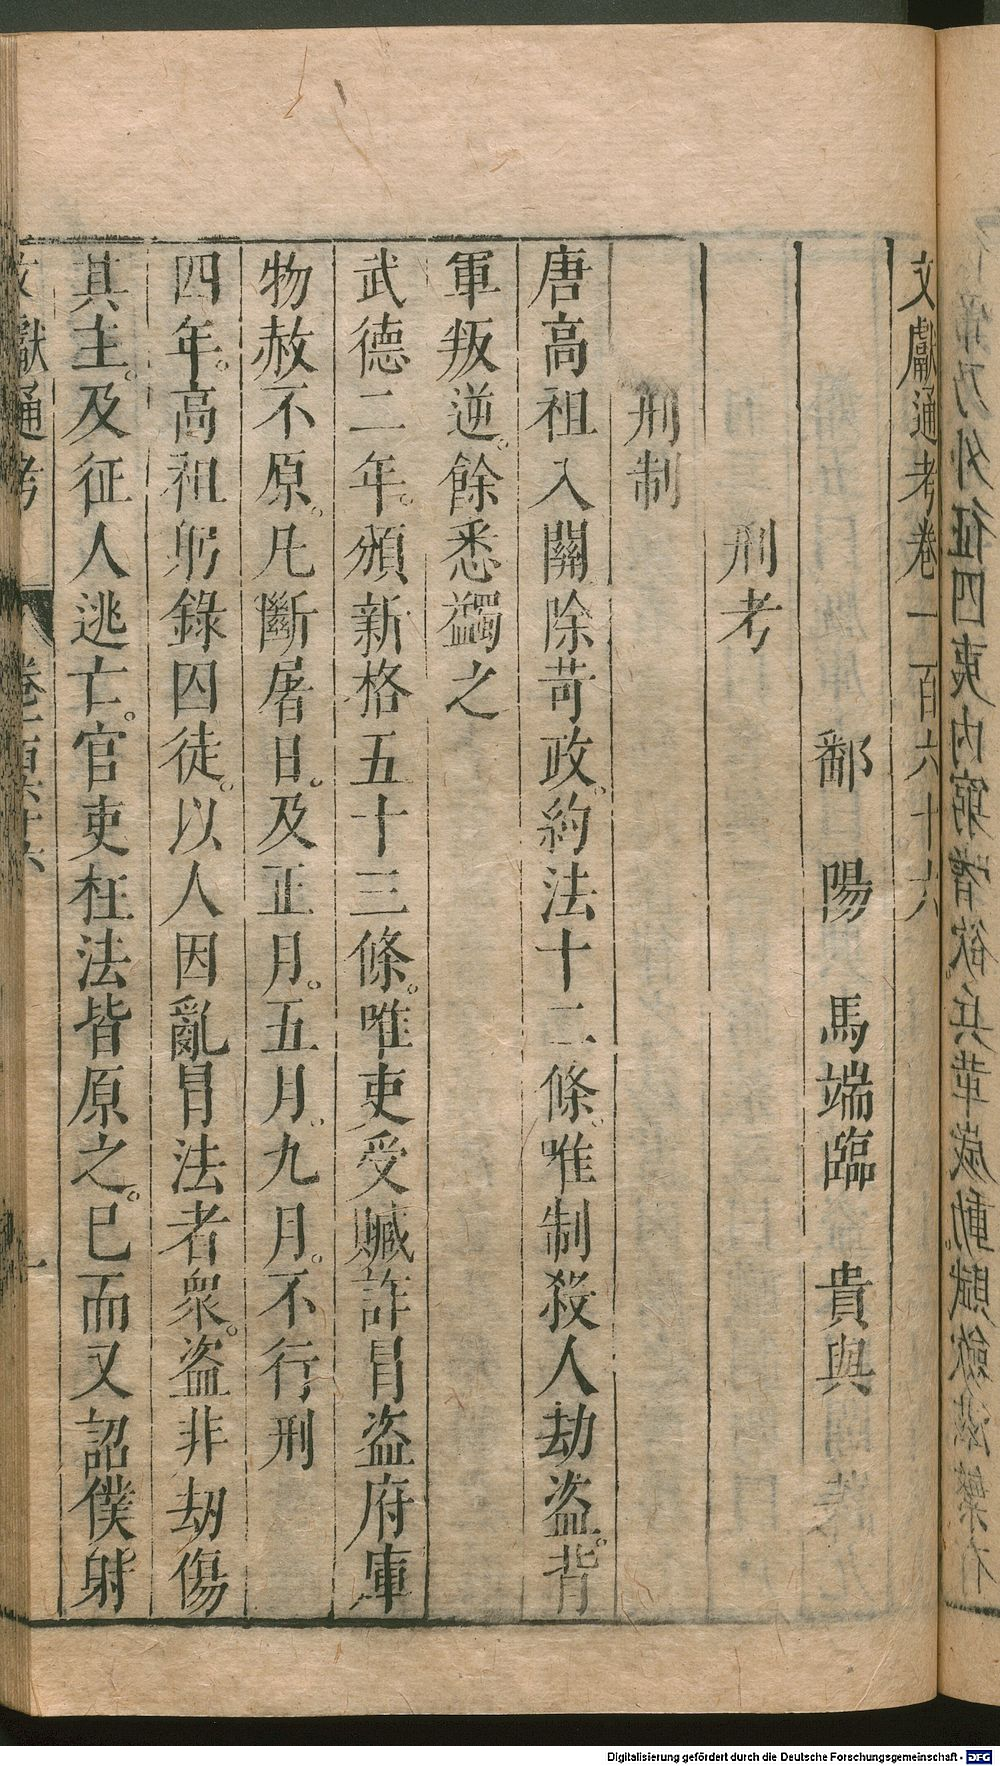 文獻通考卷一百六十六
鄱陽馬端臨貴與
刑考
刑制
唐高祖入關除苛政。約法十二條。唯制殺人劫盗。背
軍叛逆。餘悉蠲之
武德二年。頒新格五十三條。唯吏受贓詐冒盗府庫
物赦不原。凡斷屠日。及正月。五月。九月。不行刑
四年。高祖躬錄囚徒。以人因亂冒法者衆。盗非劫傷
其主。及征人逃亡。官吏枉法皆原之。已而又詔僕射
文獻通考 卷一百六十六 一
Digitalisierung gefördert durch die Deutsche Forschungsgemeinschaft - DFG